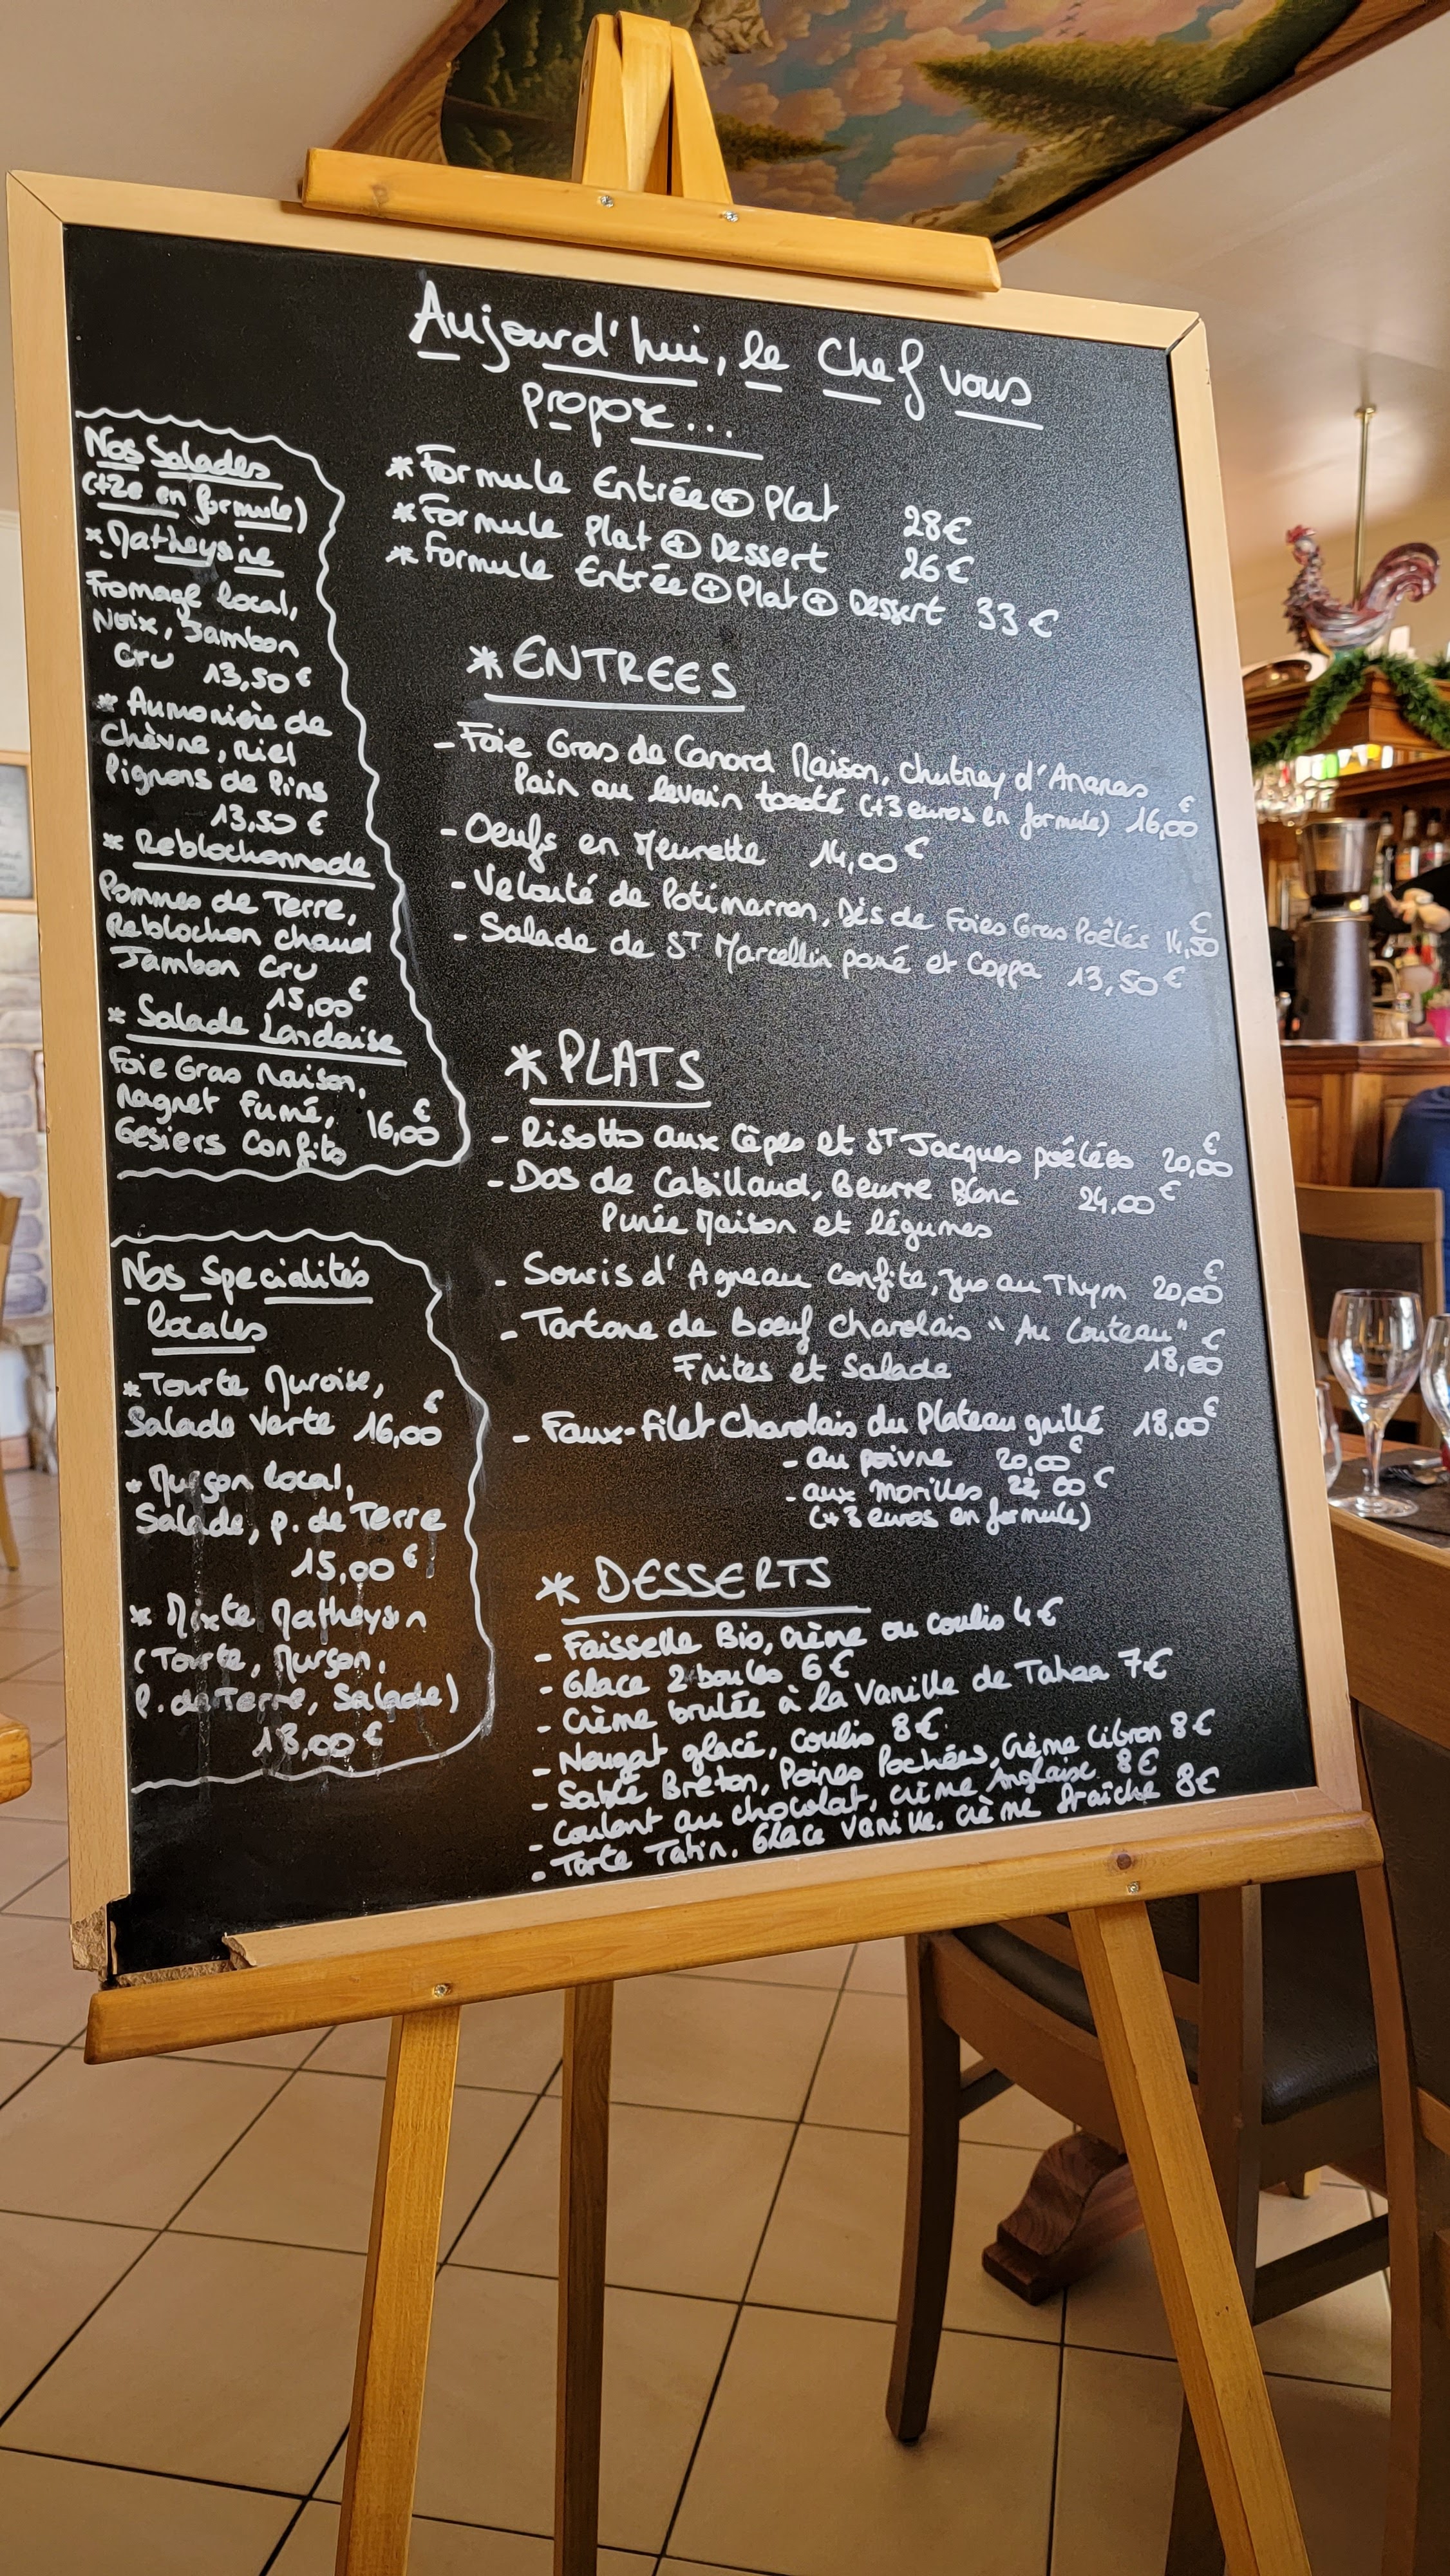 Aujourd'hui, le Chef vous
propose...
* Formule Entrée ⊕ Plat 28€
* Formule Plat ⊕ Dessert 26€
* Formule Entrée ⊕ Plat ⊕ Dessert 33€
Nos Salades
(+2e en formule)
* Matheysine
Fromage local,
Noix, Jambon
Cru 13,50€
* Aumonière de
Chèvre, Miel
Pignons de Pins
13,50€
* Reblochonnade
Pommes de Terre,
Reblochon chaud
Jambon Cru
15,00€
* Salade Landaise
Foie Gras Maison,
Magret Fumé,
Gesiers Confits 16,00€
Nos Specialités
locales
* Tourte Muroise,
Salade Verte 16,00€
* Murçon local,
Salade, p. de Terre
15,00€
* Mixte Matheysin
(Tourte, Murçon,
P. de Terre, Salade)
18,00€
* ENTREES
- Foie Gras de Canard Maison, chutney d'Ananas
Pain au levain toasté (+3 euros en formule) 16,00€
- Oeufs en Meurette 14,00€
- Velouté de Potimarron, Dés de Foies Gras Poêlés 14,50€
- Salade de ST Marcellin pané et Coppa 13,50€
* PLATS
- Risotto aux Cèpes et ST Jacques poêlées 20,00€
- Dos de Cabillaud, Beurre Blanc 24,00€
Purée Maison et légumes
- Souris d'Agneau Confite, Jus au Thym 20,00€
- Tartare de bœuf charolais "Au Couteau"
Frites et Salade 18,00€
- Faux-Filet Charolais du Plateau grillé 18,00€
- au poivre 20,00€
- aux morilles 22,00€
(+3 euros en formule)
* DESSERTS
- Faisselle Bio, crème ou coulis 4€
- Glace 2 boules 6€
- Crème brulée à la Vanille de Tahaa 7€
- Nougat glacé, coulis 8€
- Sablé Breton, Poires Pochées, Crème Citron 8€
- Coulant au chocolat, crème Anglaise 8€
- Tarte Tatin, Glace Vanille, crème fraîche 8€